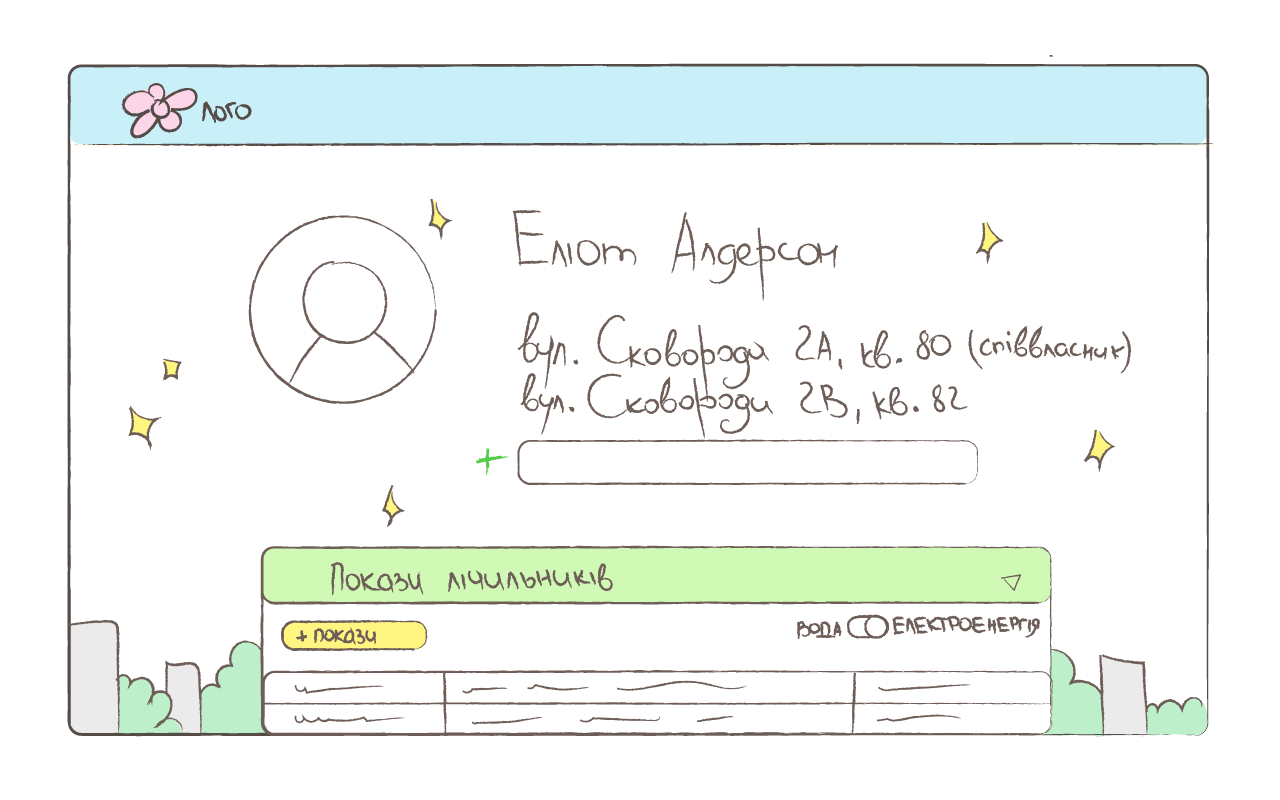 Лого
Еліот Алдерсон
вул. Сковороди 2А, кв. 80 (співвласник)
вул. Сковороди 2В, кв. 82
+
Покази лічильників
+ покази
ВОДА ЕЛЕКТРОЕНЕРГІЯ